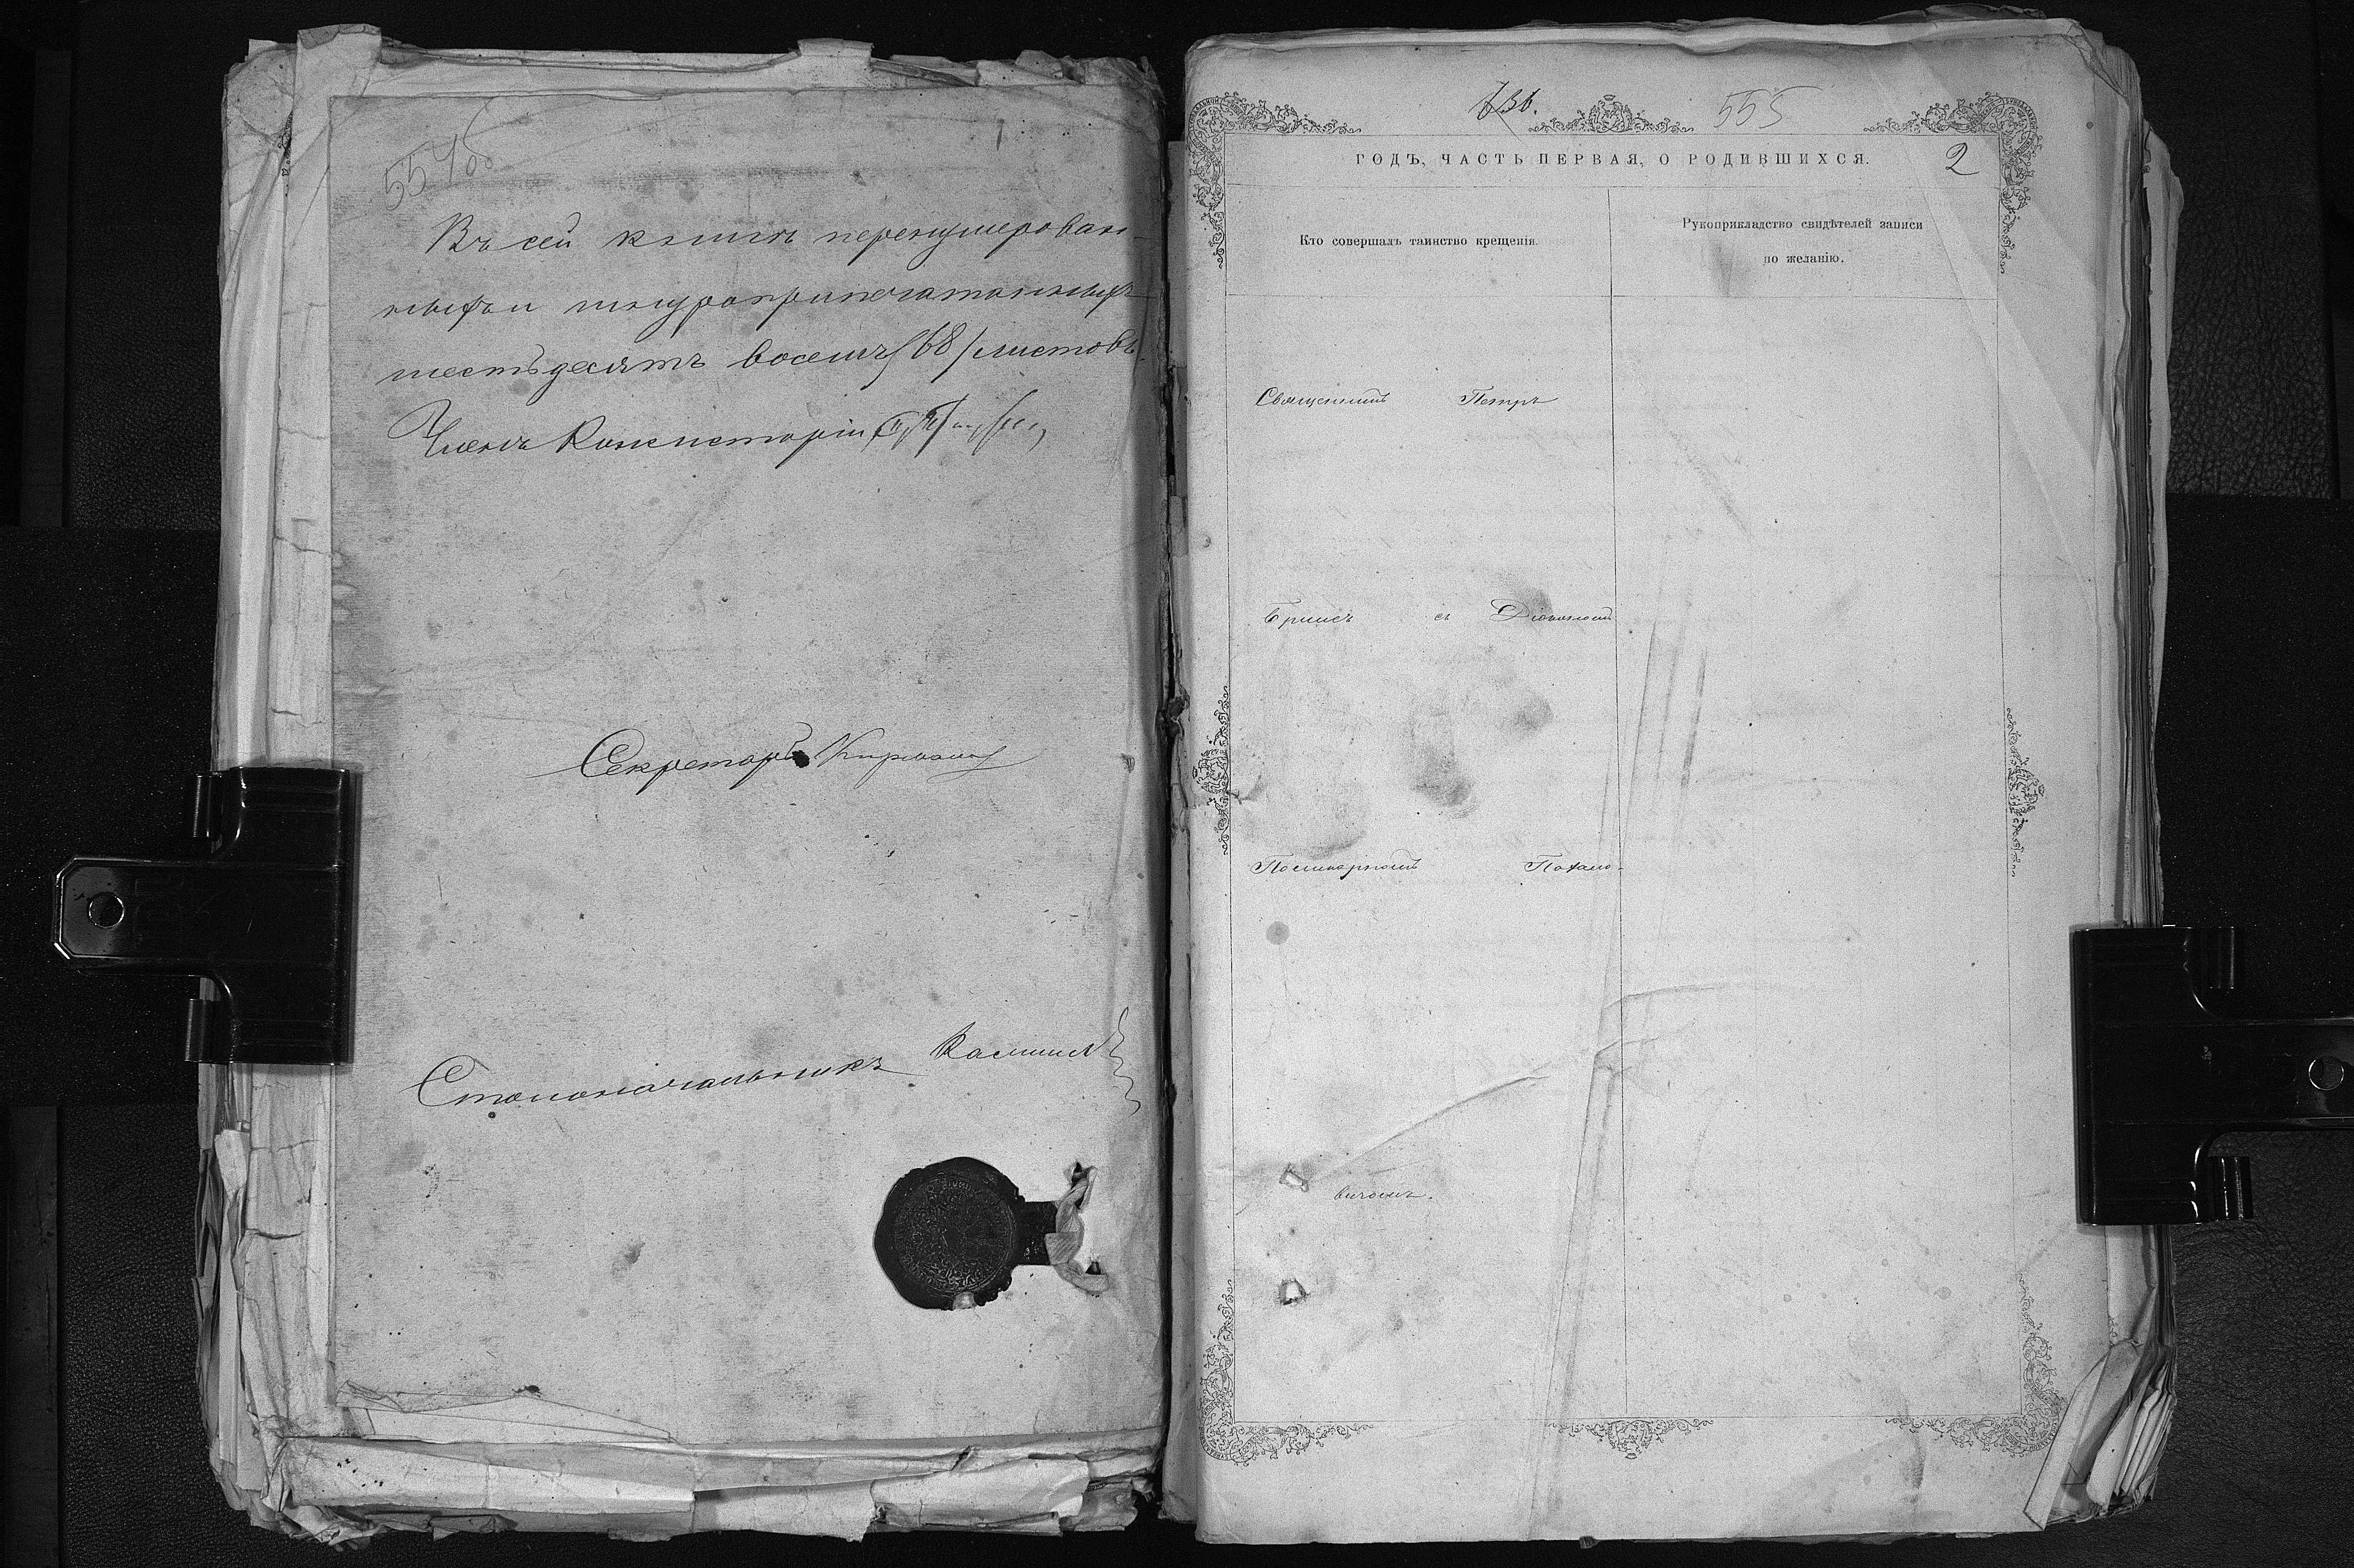 554 об
Въ сей книгѣ перенумерован-
ныхъ и шнуроприпечатанныхъ
шестьдесятъ восемь /68/ листовъ.
Членъ Консисторіи
Секретарь
Столоначальникъ
555
ГОДЪ, ЧАСТЬ ПЕРВАЯ, О РОДИВШИХСЯ.
2
Кто совершалъ таинство крещенія.
Рукоприкладство свидѣтелей записи
по желанію.
Священникъ Петръ
съ Діакономъ
вичемъ.